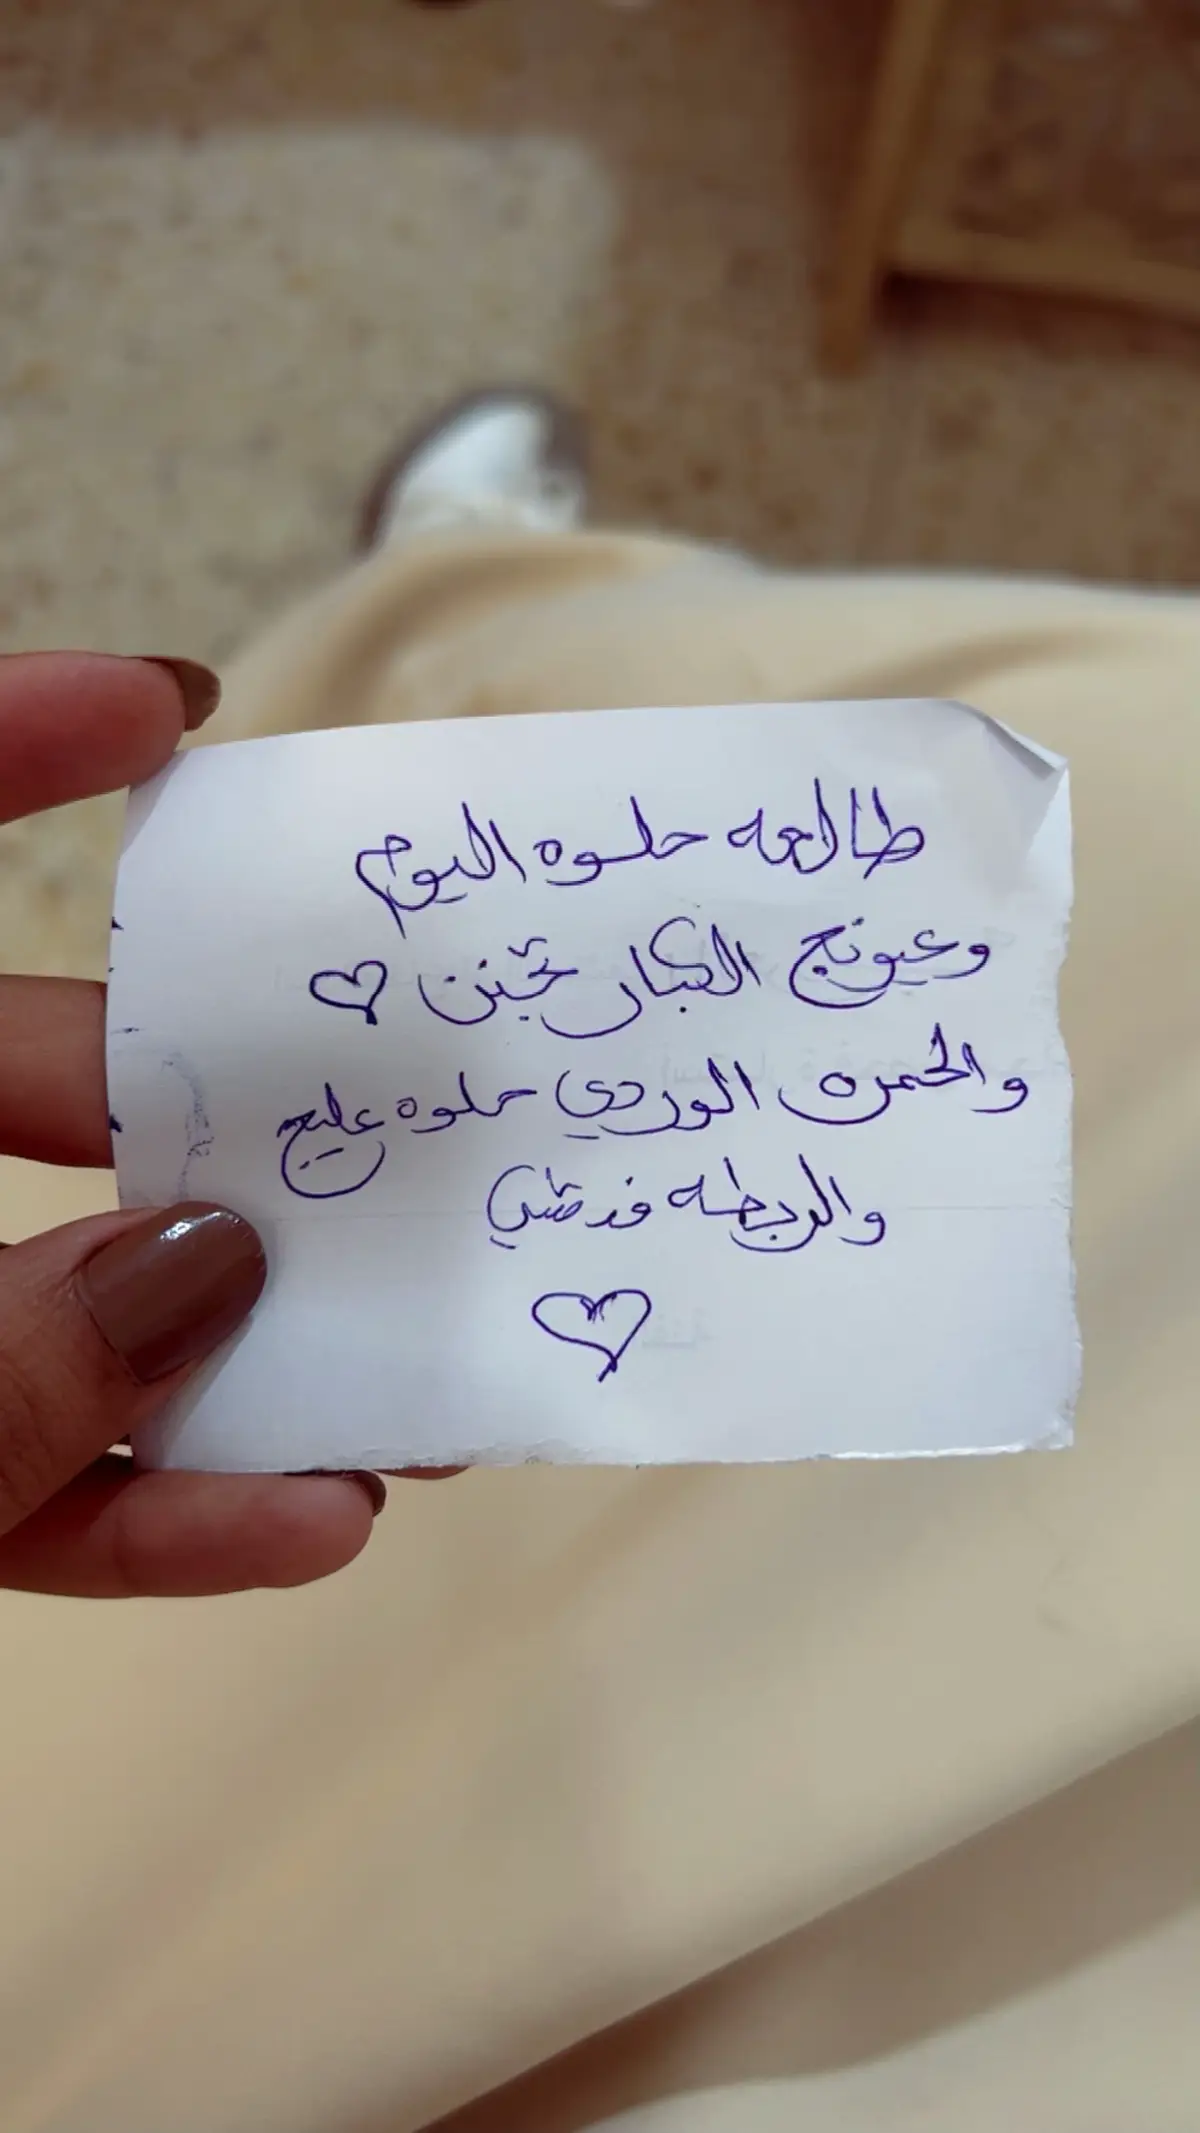 طالعه حلوه اليوم
وعيونج الكبار تجنن ♡
والحمره الوردي حلوه عليج
والربطه فد شي
♡